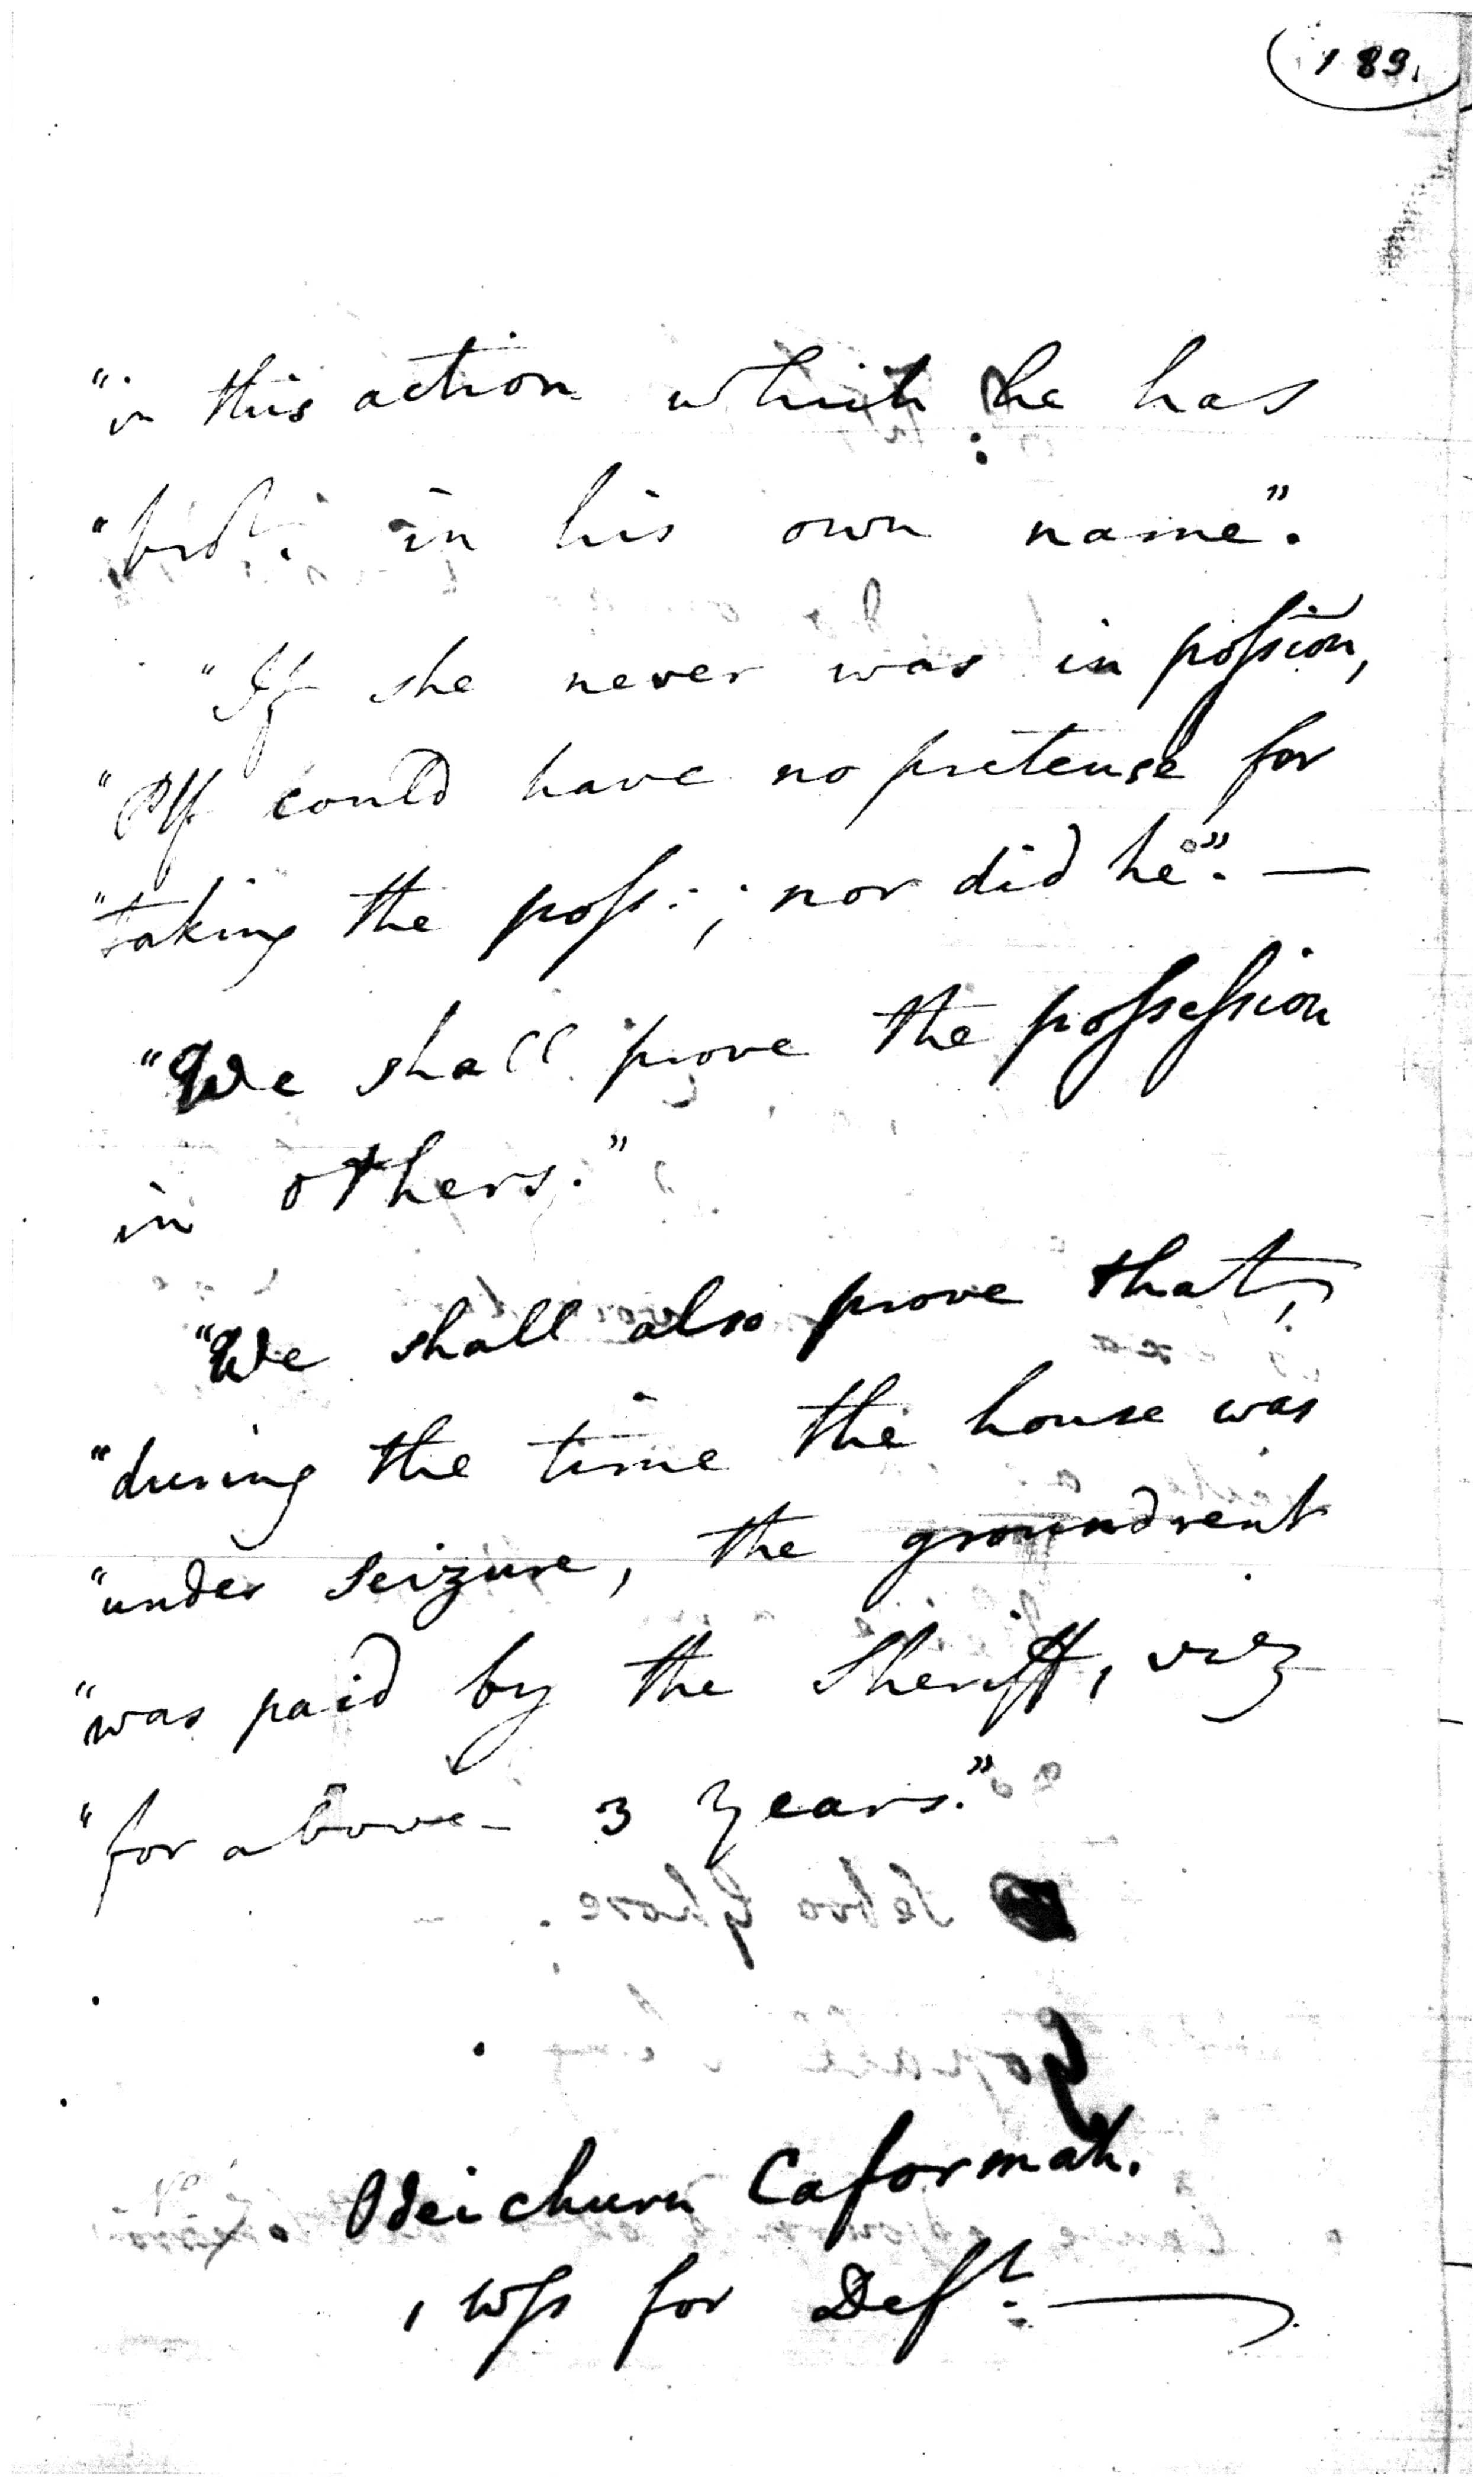 189.
"in this action which he has
"brot. in his own name".
"If she never was in possion,
"Plf could have no pretense for
"taking the poss:; nor did he". —
"We shall prove the possession
in others."
"We shall also prove that,
"during the time the house was
"under seizure, the groundrent
"was paid by the Sheriff, viz
"for above 3 years."
Odeichurn Caformah.
1 Wss for Deft. —